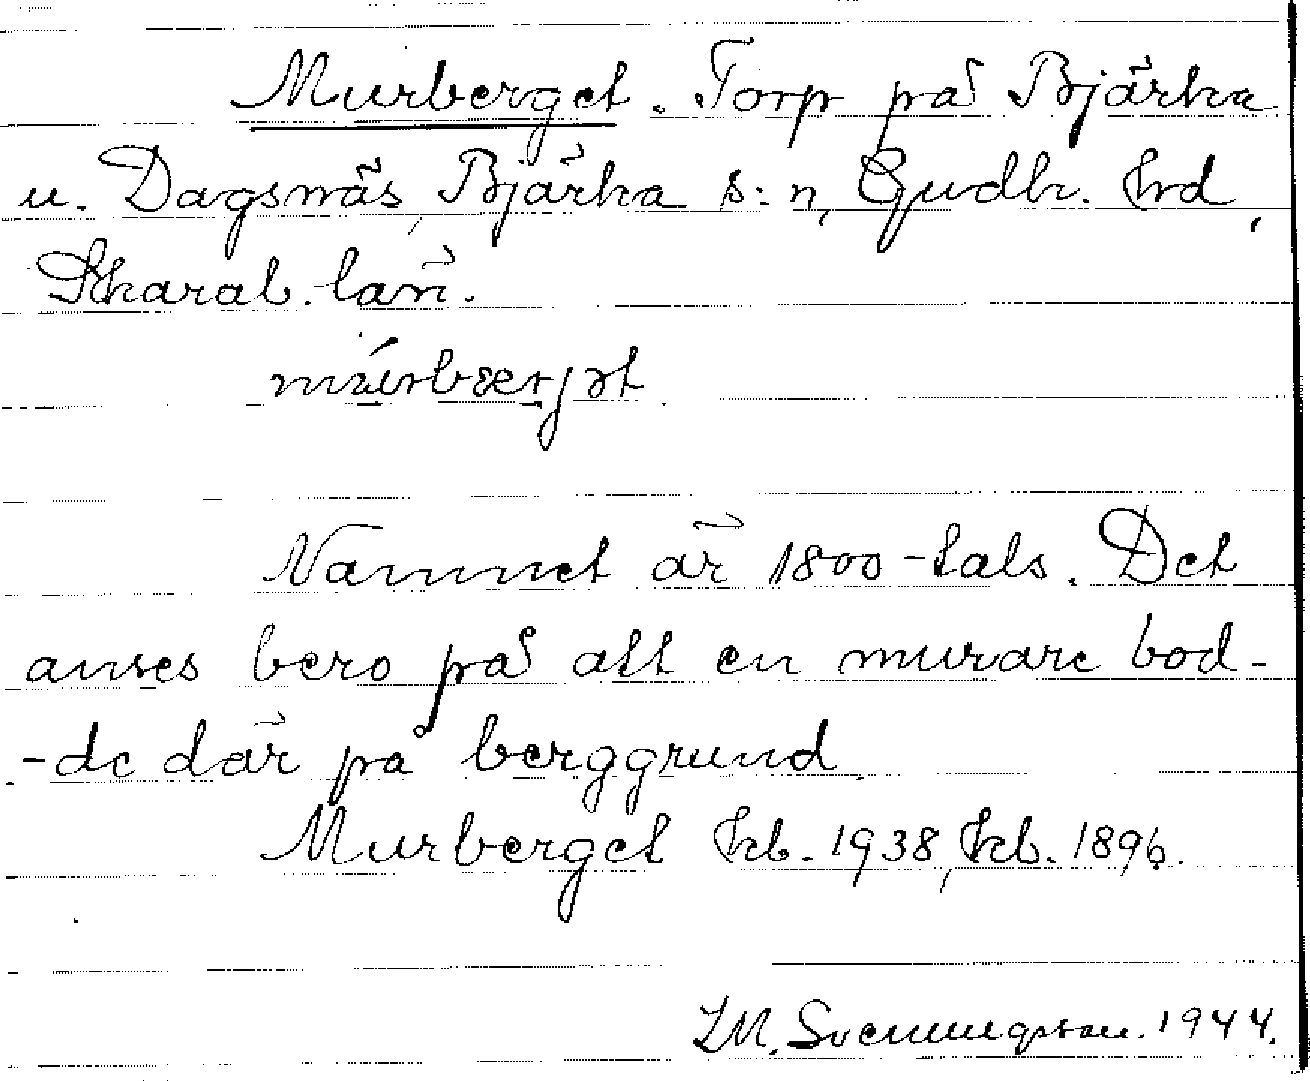 Murberget. Torp på Bjärka
u. Dagsnäs, Bjärka s:n, Gudh. hrd,
Skarab. län.
múrbærjət
Namnet är 1800-tals. Det
anses bero på att en murare bod-
-de där på berggrund.
Murberget Jrb. 1938, Jrb. 1896.
I.M. Svenningsson. 1944.